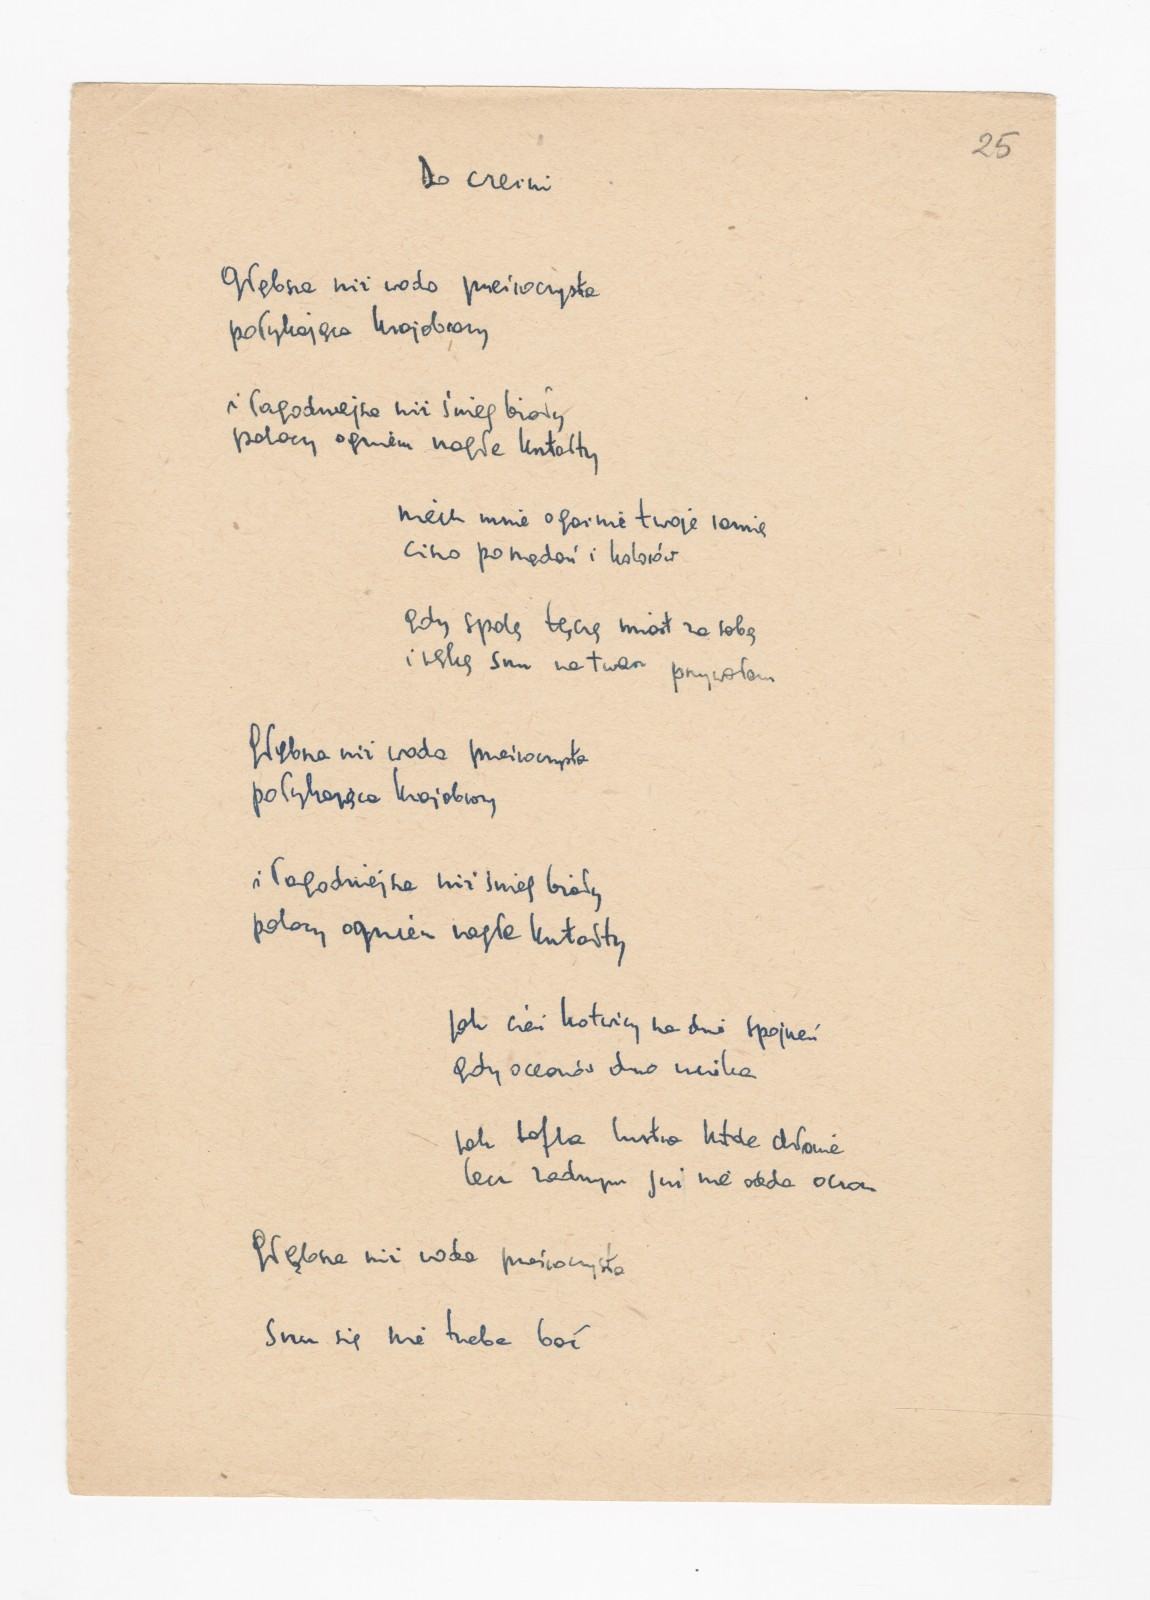 25
Do czerni
Głębsza niż woda przeźroczysta
połykająca krajobrazy
i łagodniejsza niż śnieg biały
palący ogniem nagłe kształty
niech mnie ogarnie twoje ramię
cisza pożądań i kolorów
gdy spalę tęczę miast za sobą
i ręką snu na twarz przywołam
Głębsza niż woda przeźroczysta
połykająca krajobrazy
i łagodniejsza niż śnieg biały
palący ogniem nagłe kształty
jak cień kotwicy na dnie spojrzeń
gdy oceanów dno umika
jak tafla lustra kładę dłonie
lecz żadnym już nie odda oczom
Głębsza niż woda przeźroczysta
Snu się nie trzeba bać